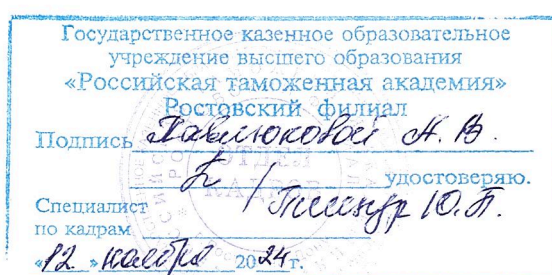 Государственное казенное образовательное
учреждение высшего образования
«Российская таможенная академия»
Ростовский филиал
Подпись Павлюковой А. В.
удостоверяю.
Специалист
по кадрам / Ю. П.
«12» ноября 2024 г.
ОТДЕЛ
КАДРОВ